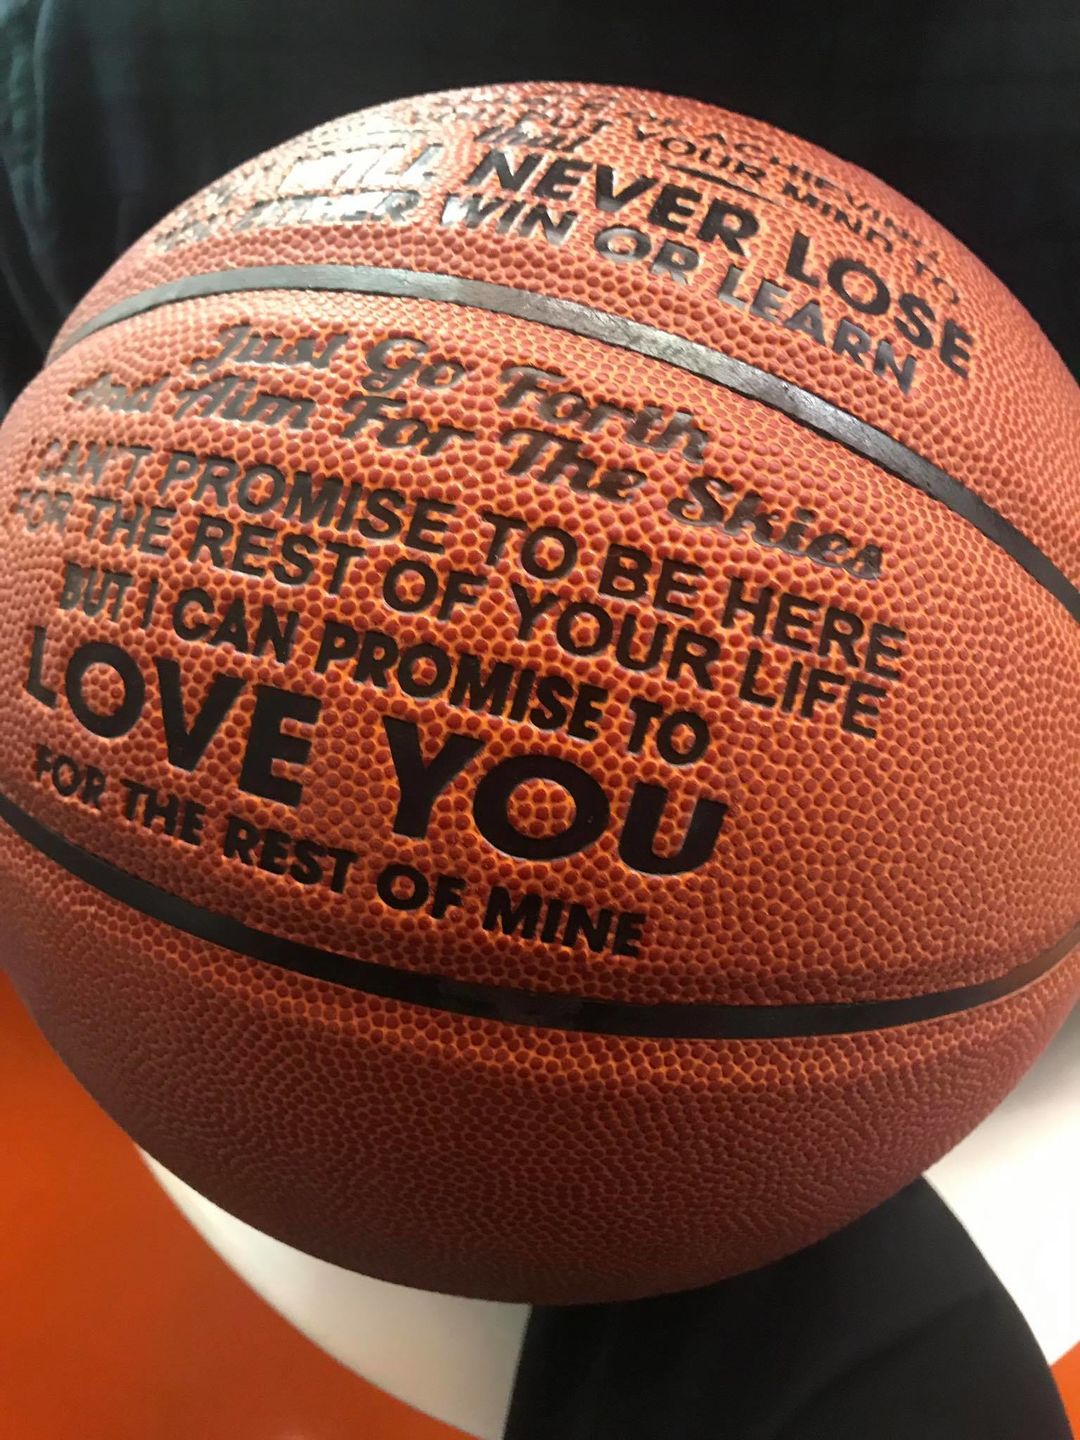 OF ACHIEVING
PUT YOUR MIND TO
that
WILL NEVER LOSE
EITHER WIN OR LEARN
Just Go Forth
And Aim For The Skies
CAN'T PROMISE TO BE HERE
FOR THE REST OF YOUR LIFE
BUT I CAN PROMISE TO
LOVE YOU
FOR THE REST OF MINE